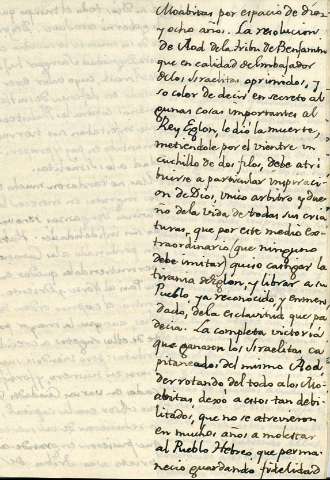 Moabitas por espacio de diez
y ocho años. La resolucion
de Aod de la tribu de Benjamin
que en calidad de Embajador
de los Israelitas oprimidos, y
so color de decir en secreto al
gunas cosas importantes al
Rey Eglon, le dió la muerte,
metiendole por el vientre un
cuchillo de dos filos, debe atri
buirse a particular inspiraci
on de Dios, unico arbitro y due
ño de la vida de todas sus cria
turas, que por este medio ex-
traordinario (que ninguno
debe imitar) quiso castigar la
tirania de Eglon, y librar a su
Pueblo, ya reconocido, y enmen
dado, de la esclavitud que pa
decia. La completa victoria
que ganaron los Israelitas ca
pitaneados del mismo Aod,
derrotando del todo a los Mo
abitas dexó a estos tan debi-
litados, que no se atrevieron
en muchos años a molestar
al Pueblo Hebreo que perma
neció guardando fidelidad